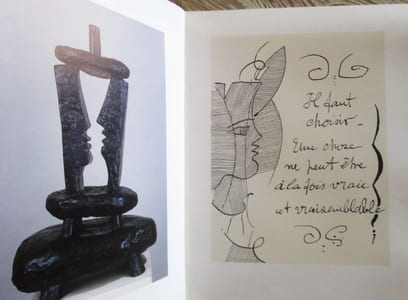 Il faut
choisir.
Une chose
ne peut être
à la fois vraie
et vraisemblable